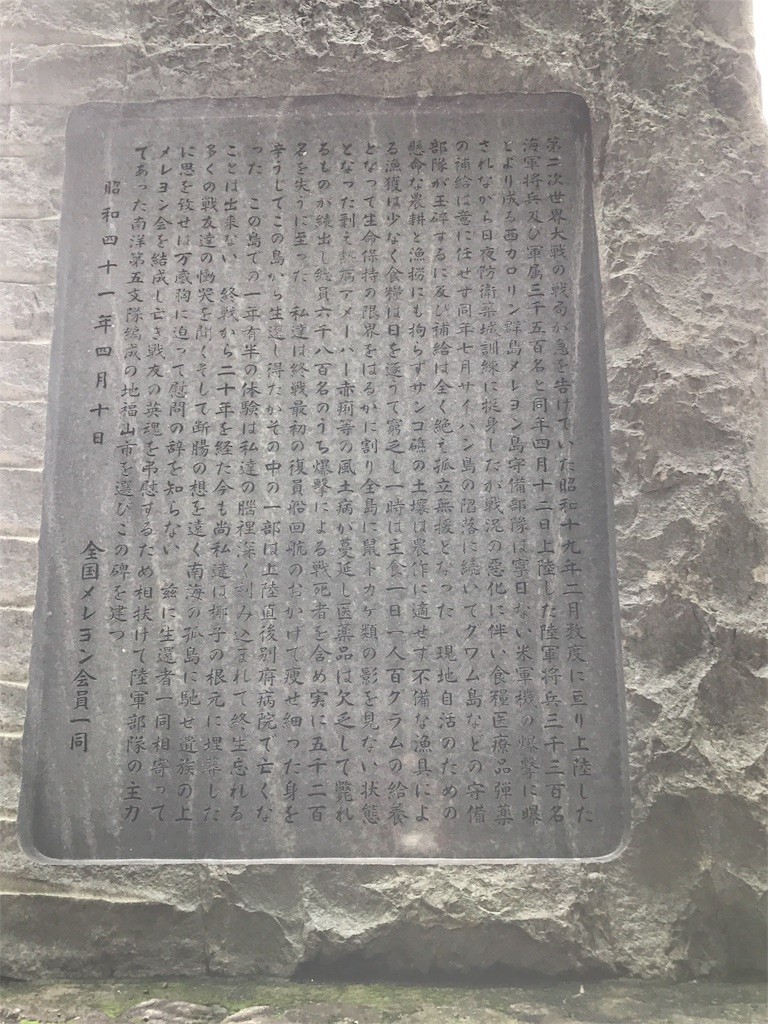 第二次世界大戦の戦局が急を告げていた昭和十九年二月数度に亘り上陸した
海軍将兵及び軍属三千五百名と同年四月十二日上陸した陸軍将兵三千三百名
とより成る西カロリン群島メレヨン島守備部隊は寧日ない米軍機の爆撃に曝
されながら日夜防衛築城訓練に挺身したが戦況の悪化に伴い食糧医療品弾薬
の補給は意に任せず同年七月サイパン島の陥落に続いてグワム島などの守備
部隊が玉砕するに及び補給は全く絶え孤立無援となった 現地自活のための
懸命な農耕と漁撈にも拘らずサンゴ礁の土壌は農作に適せず不備な漁具によ
る漁獲は少なく食糧は日を逐うて窮乏し一時は主食一日一人百グラムの給養
となって生命保持の限界をはるかに割り全島に鼠トカゲ類の影を見ない状態
となった剰え熱病アメーバー赤痢等の風土病が蔓延し医薬品は欠乏して斃れ
るものが続出し総員六千八百名のうち爆撃による戦死者を含め実に五千二百
名を失うに至った 私達は終戦最初の復員船回航のおかげで痩せ細った身を
辛うじてこの島から生還し得たがその中の一部は上陸直後別府病院で亡くな
った この島での一年有半の体験は私達の脳裡深く刻み込まれて終生忘れる
ことは出来ない 終戦から二十年を経た今も尚私達は椰子の根元に埋葬した
多くの戦友達の慟哭を聞くそして断腸の想を遠く南海の孤島に馳せ遺族の上
に思を致せば万感胸に迫って慰問の辞を知らない 茲に生還者一同相寄って
メレヨン会を結成し亡き戦友の英魂を弔慰するため相扶けて陸軍部隊の主力
であった南洋第五支隊編成の地福山市を選びこの碑を建つ
昭和四十一年四月十日
全国メレヨン会員一同